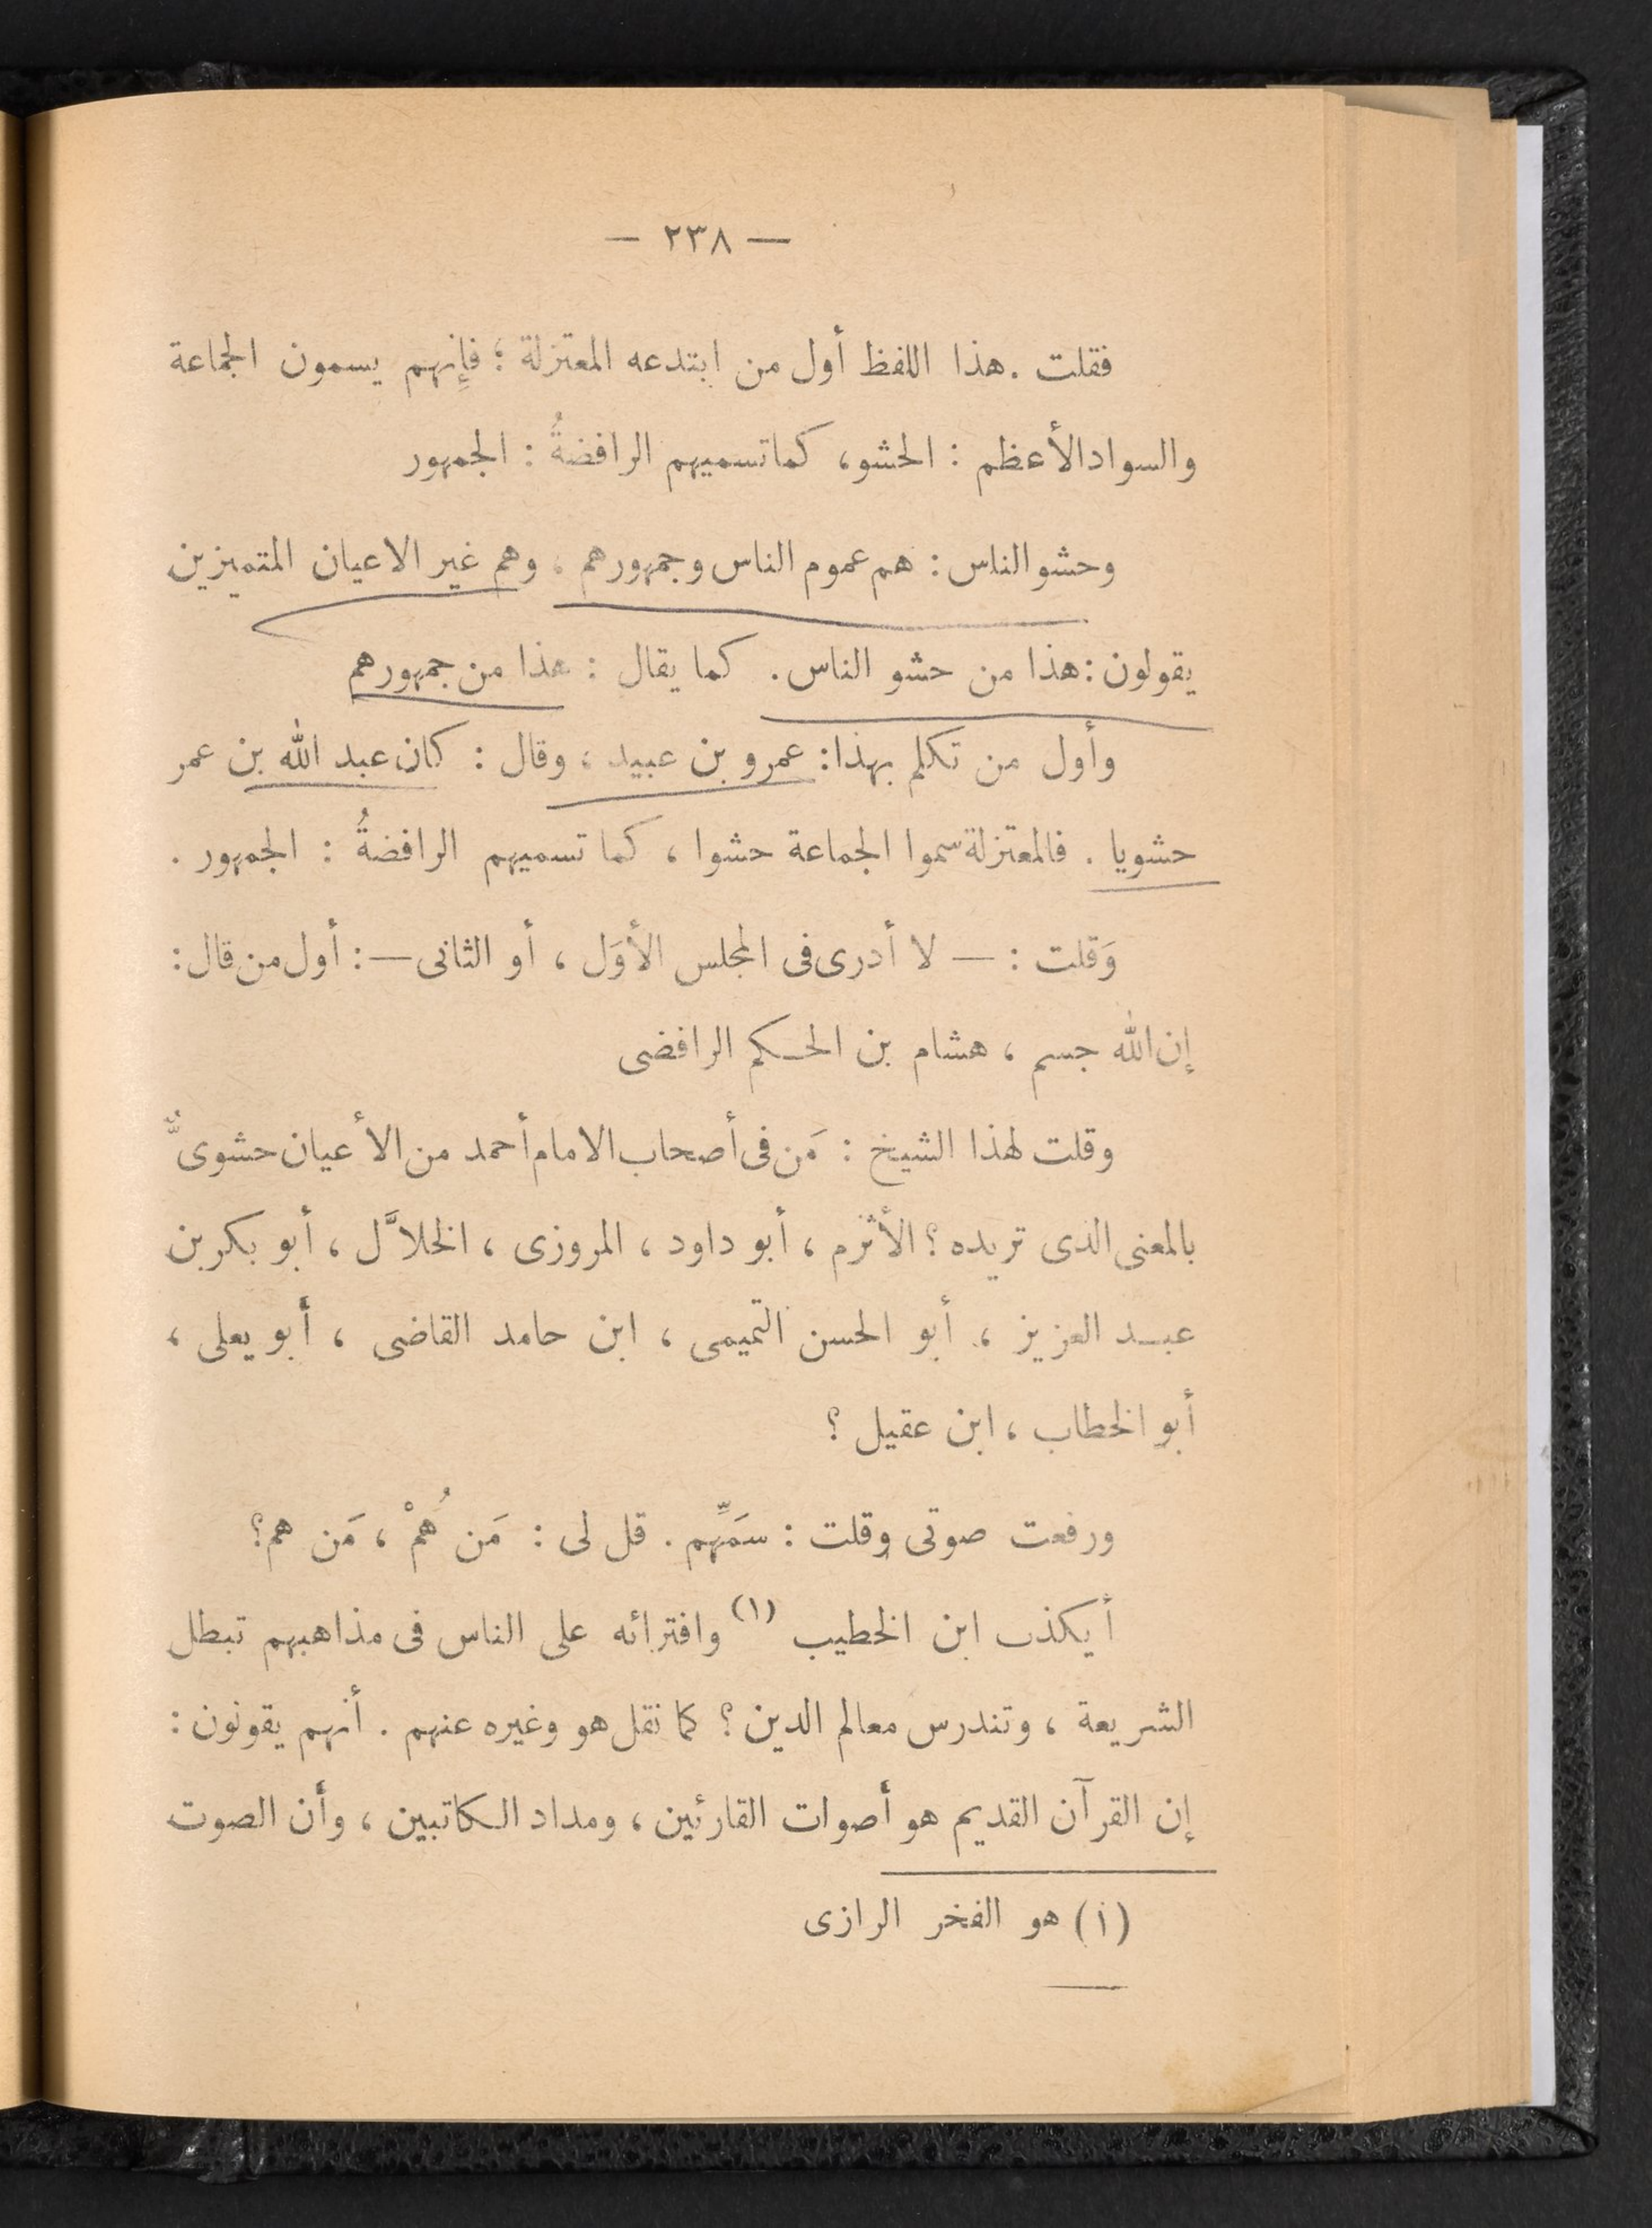 — ٢٣٨ —
فقلت . هذا اللفظ أول من ابتدعه المعتزلة ؛ فإنهم يسمون الجماعة
والسواد الأعظم : الحشو ، كما تسميهم الرافضةُ : الجمهور
وحشو الناس : هم عموم الناس وجمهورهم . وهم غير الاعيان المتميزين
يقولون : هذا من حشو الناس . كما يقال : هذا من جمهورهم
وأول من تكلم بهذا : عمرو بن عبيد ، وقال : كان عبد الله بن عمر
حشويا . فالمعتزلة سموا الجماعة حشوا ، كما تسميهم الرافضةُ : الجمهور .
وَقلت : — لا أدرى فى المجلس الأوَل ، أو الثانى — : أول من قال :
إن الله جسم ، هشام بن الحكم الرافضى
وقلت لهذا الشيخ : مَن فى أصحاب الامام أحمد من الأعيان حشوىٌّ
بالمعنى الذى تريده ؟ الأثرم ، أبو داود ، المروزى ، الخلاَّل ، أبو بكر بن
عبد العزيز ، أبو الحسن التميمى ، ابن حامد القاضى ، أبو يعلى ،
أبو الخطاب ، ابن عقيل ؟
ورفعت صوتى وقلت : سَمِّهم . قل لى : مَن هُمْ ، مَن هم ؟
أيكذب ابن الخطيب (١) وافترائه على الناس فى مذاهبهم تبطل
الشريعة ، وتندرس معالم الدين ؟ كما نقل هو وغيره عنهم . أنهم يقولون :
إن القرآن القديم هو أصوات القارئين ، ومداد الكاتبين ، وأن الصوت
(١) هو الفخر الرازى